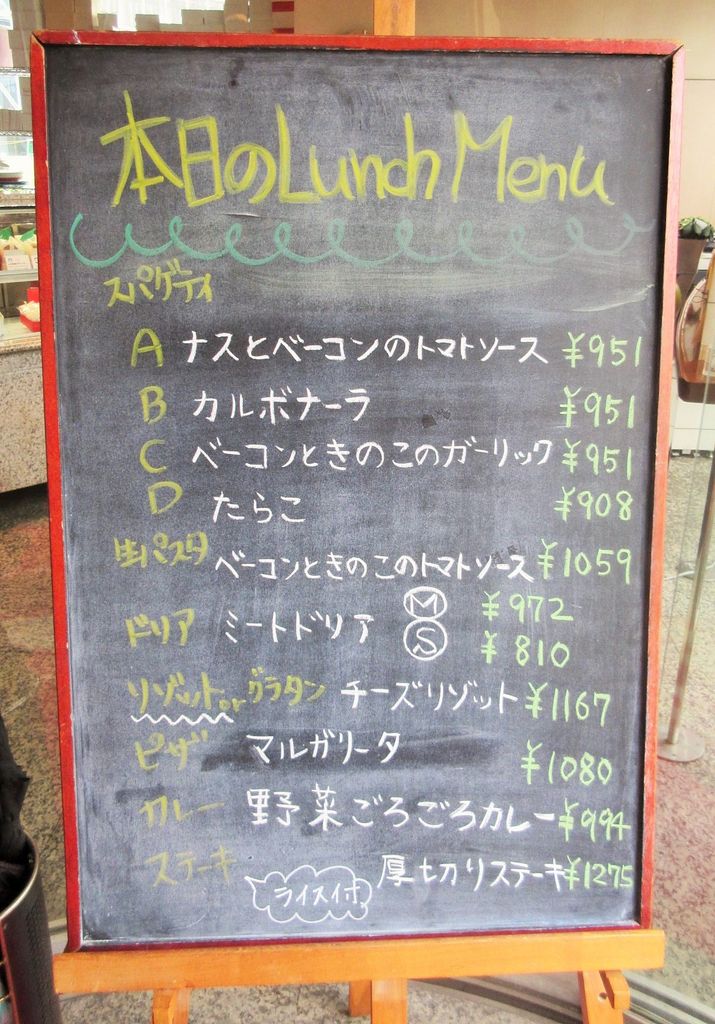 本日のLunch Menu
スパゲティ
A ナスとベーコンのトマトソース ¥951
B カルボナーラ ¥951
C ベーコンときのこのガーリック ¥951
D たらこ ¥908
生パスタ ベーコンときのこのトマトソース ¥1059
ドリア ミートドリア Ⓜ ¥972
Ⓢ ¥810
リゾットorグラタン チーズリゾット ¥1167
ピザ マルガリータ ¥1080
カレー 野菜ごろごろカレー ¥994
ステーキ 厚切りステーキ ¥1275
ライスイホ